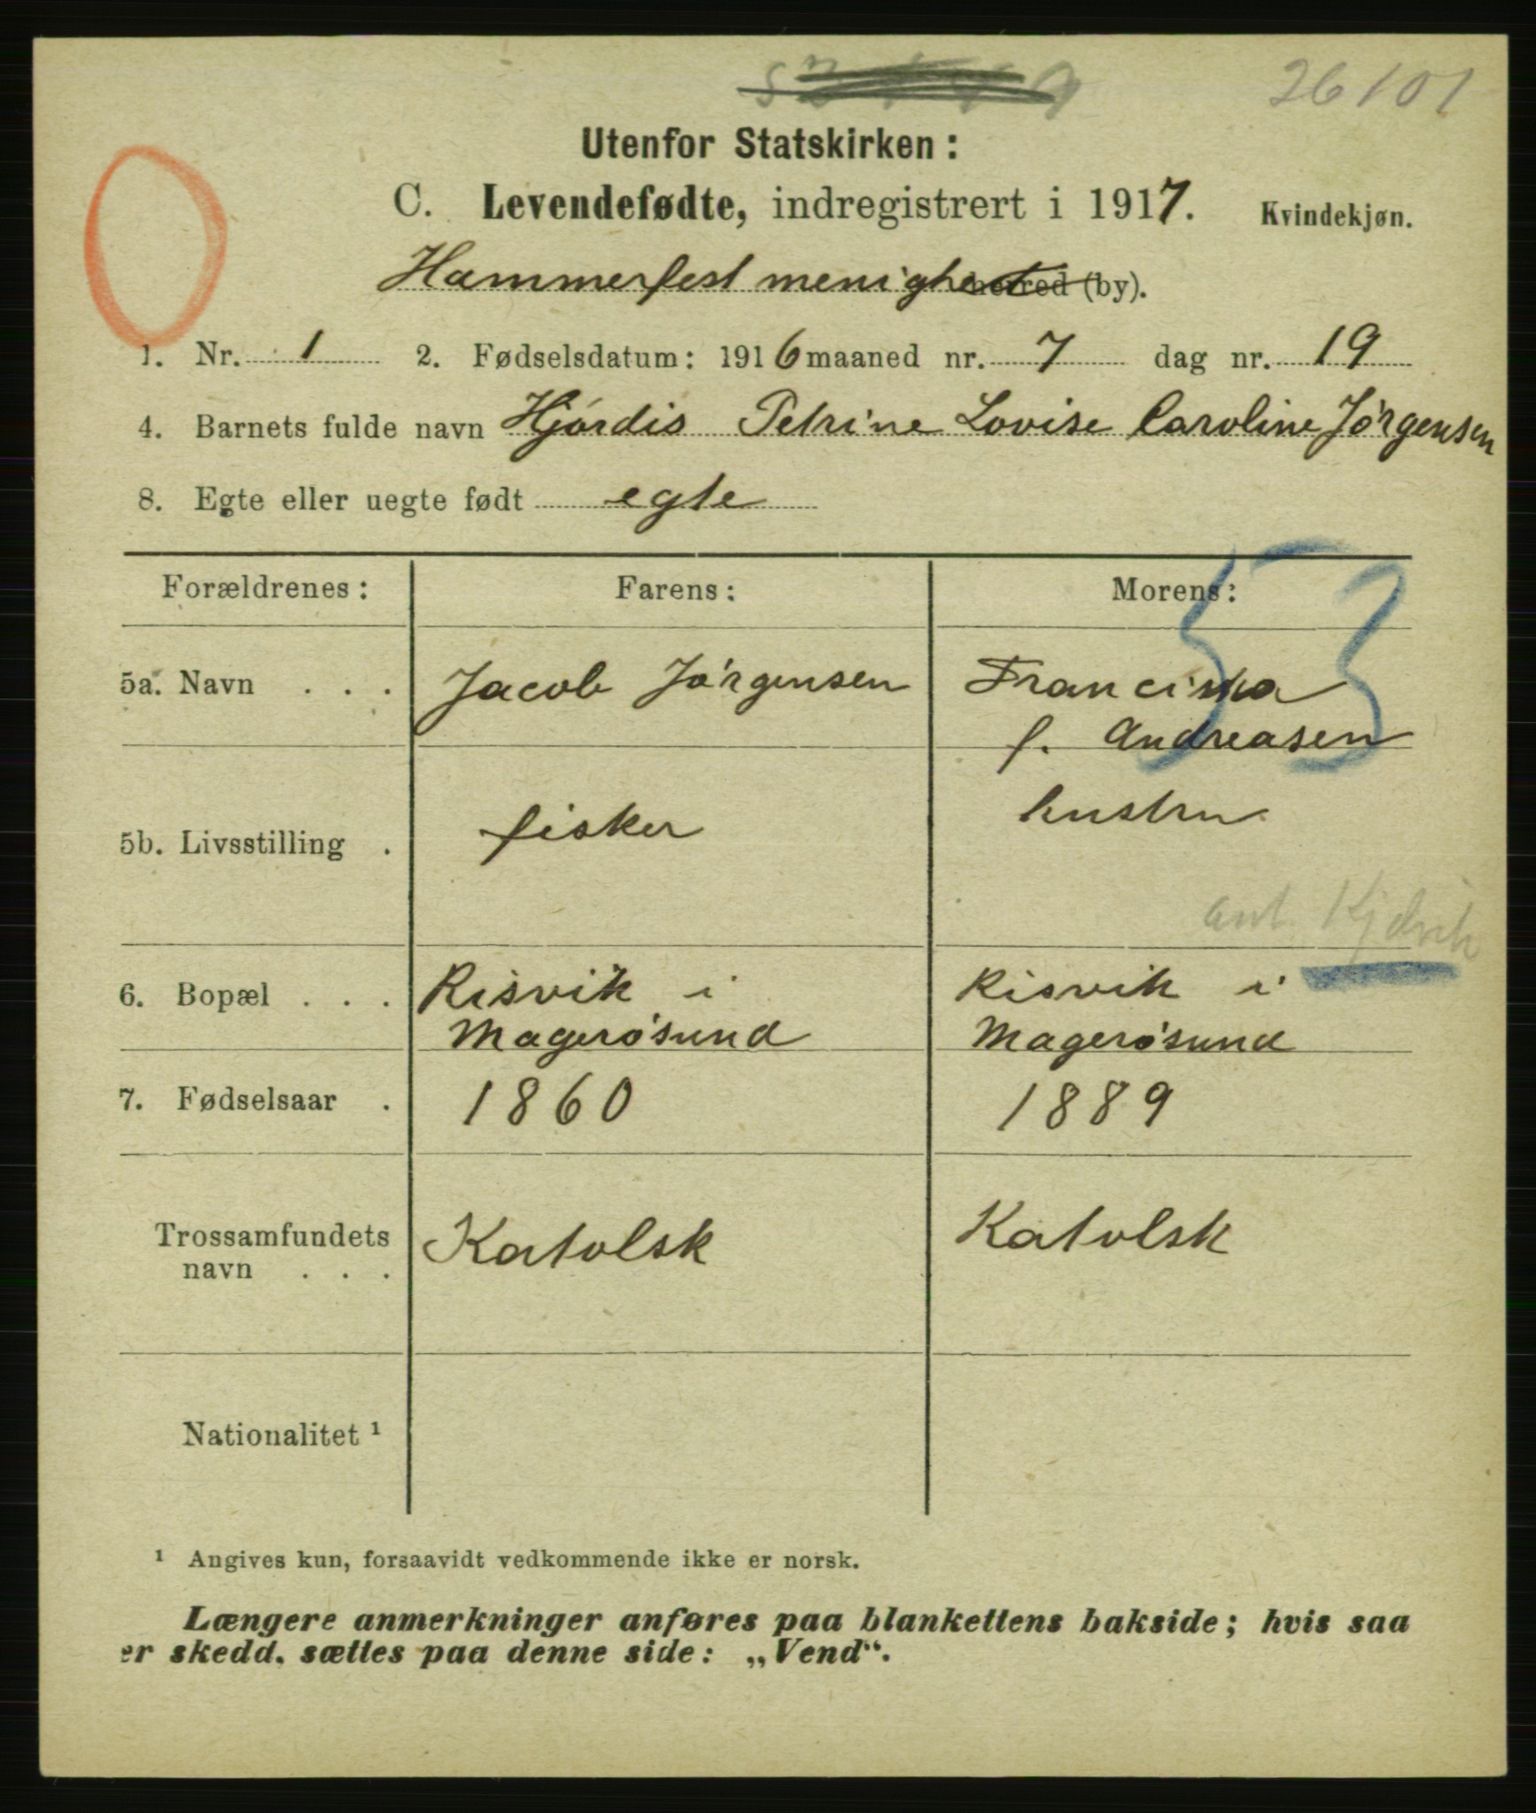 26101
Utenfor Statskirken:
C. Levendefødte, indregistrert i 1917. Kvindekjøn.
Hammerfest menighet herred (by).
1. Nr. 1 2. Fødselsdatum: 1916 maaned nr. 7 dag nr. 19
4. Barnets fulde navn Hjórdis Petrine Lovise Caroline Jórgensen
8. Egte eller uegte født egte
Forældrenes: Farens: Morens:
53
5a. Navn . . . Jacob Jórgensen Franciska
f. Andreasen
5b. Livsstilling . fisker hustru
ant. Kjelvik
6. Bopæl . . . Risvik i Risvik i
Magerósund Magerósund
7. Fødselsaar . 1860 1889
Trossamfundets
navn . . . Katolsk Katolsk
Nationalitet ¹
¹ Angives kun, forsaavidt vedkommende ikke er norsk.
Længere anmerkninger anføres paa blankettens bakside; hvis saa
er skedd, sættes paa denne side: „Vend“.